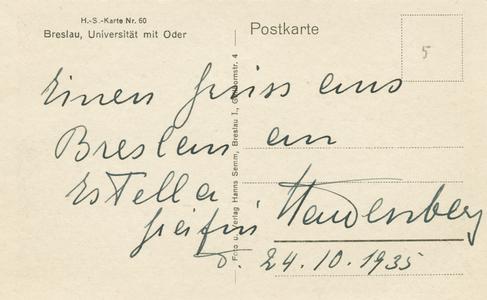 H.-S.-Karte Nr. 60
Breslau, Universität mit Oder
Postkarte
5
Einen Gruss aus
Breslau an
Estella
24.10.1935
Foto u. Verlag Hanns Semm, Breslau I., 4